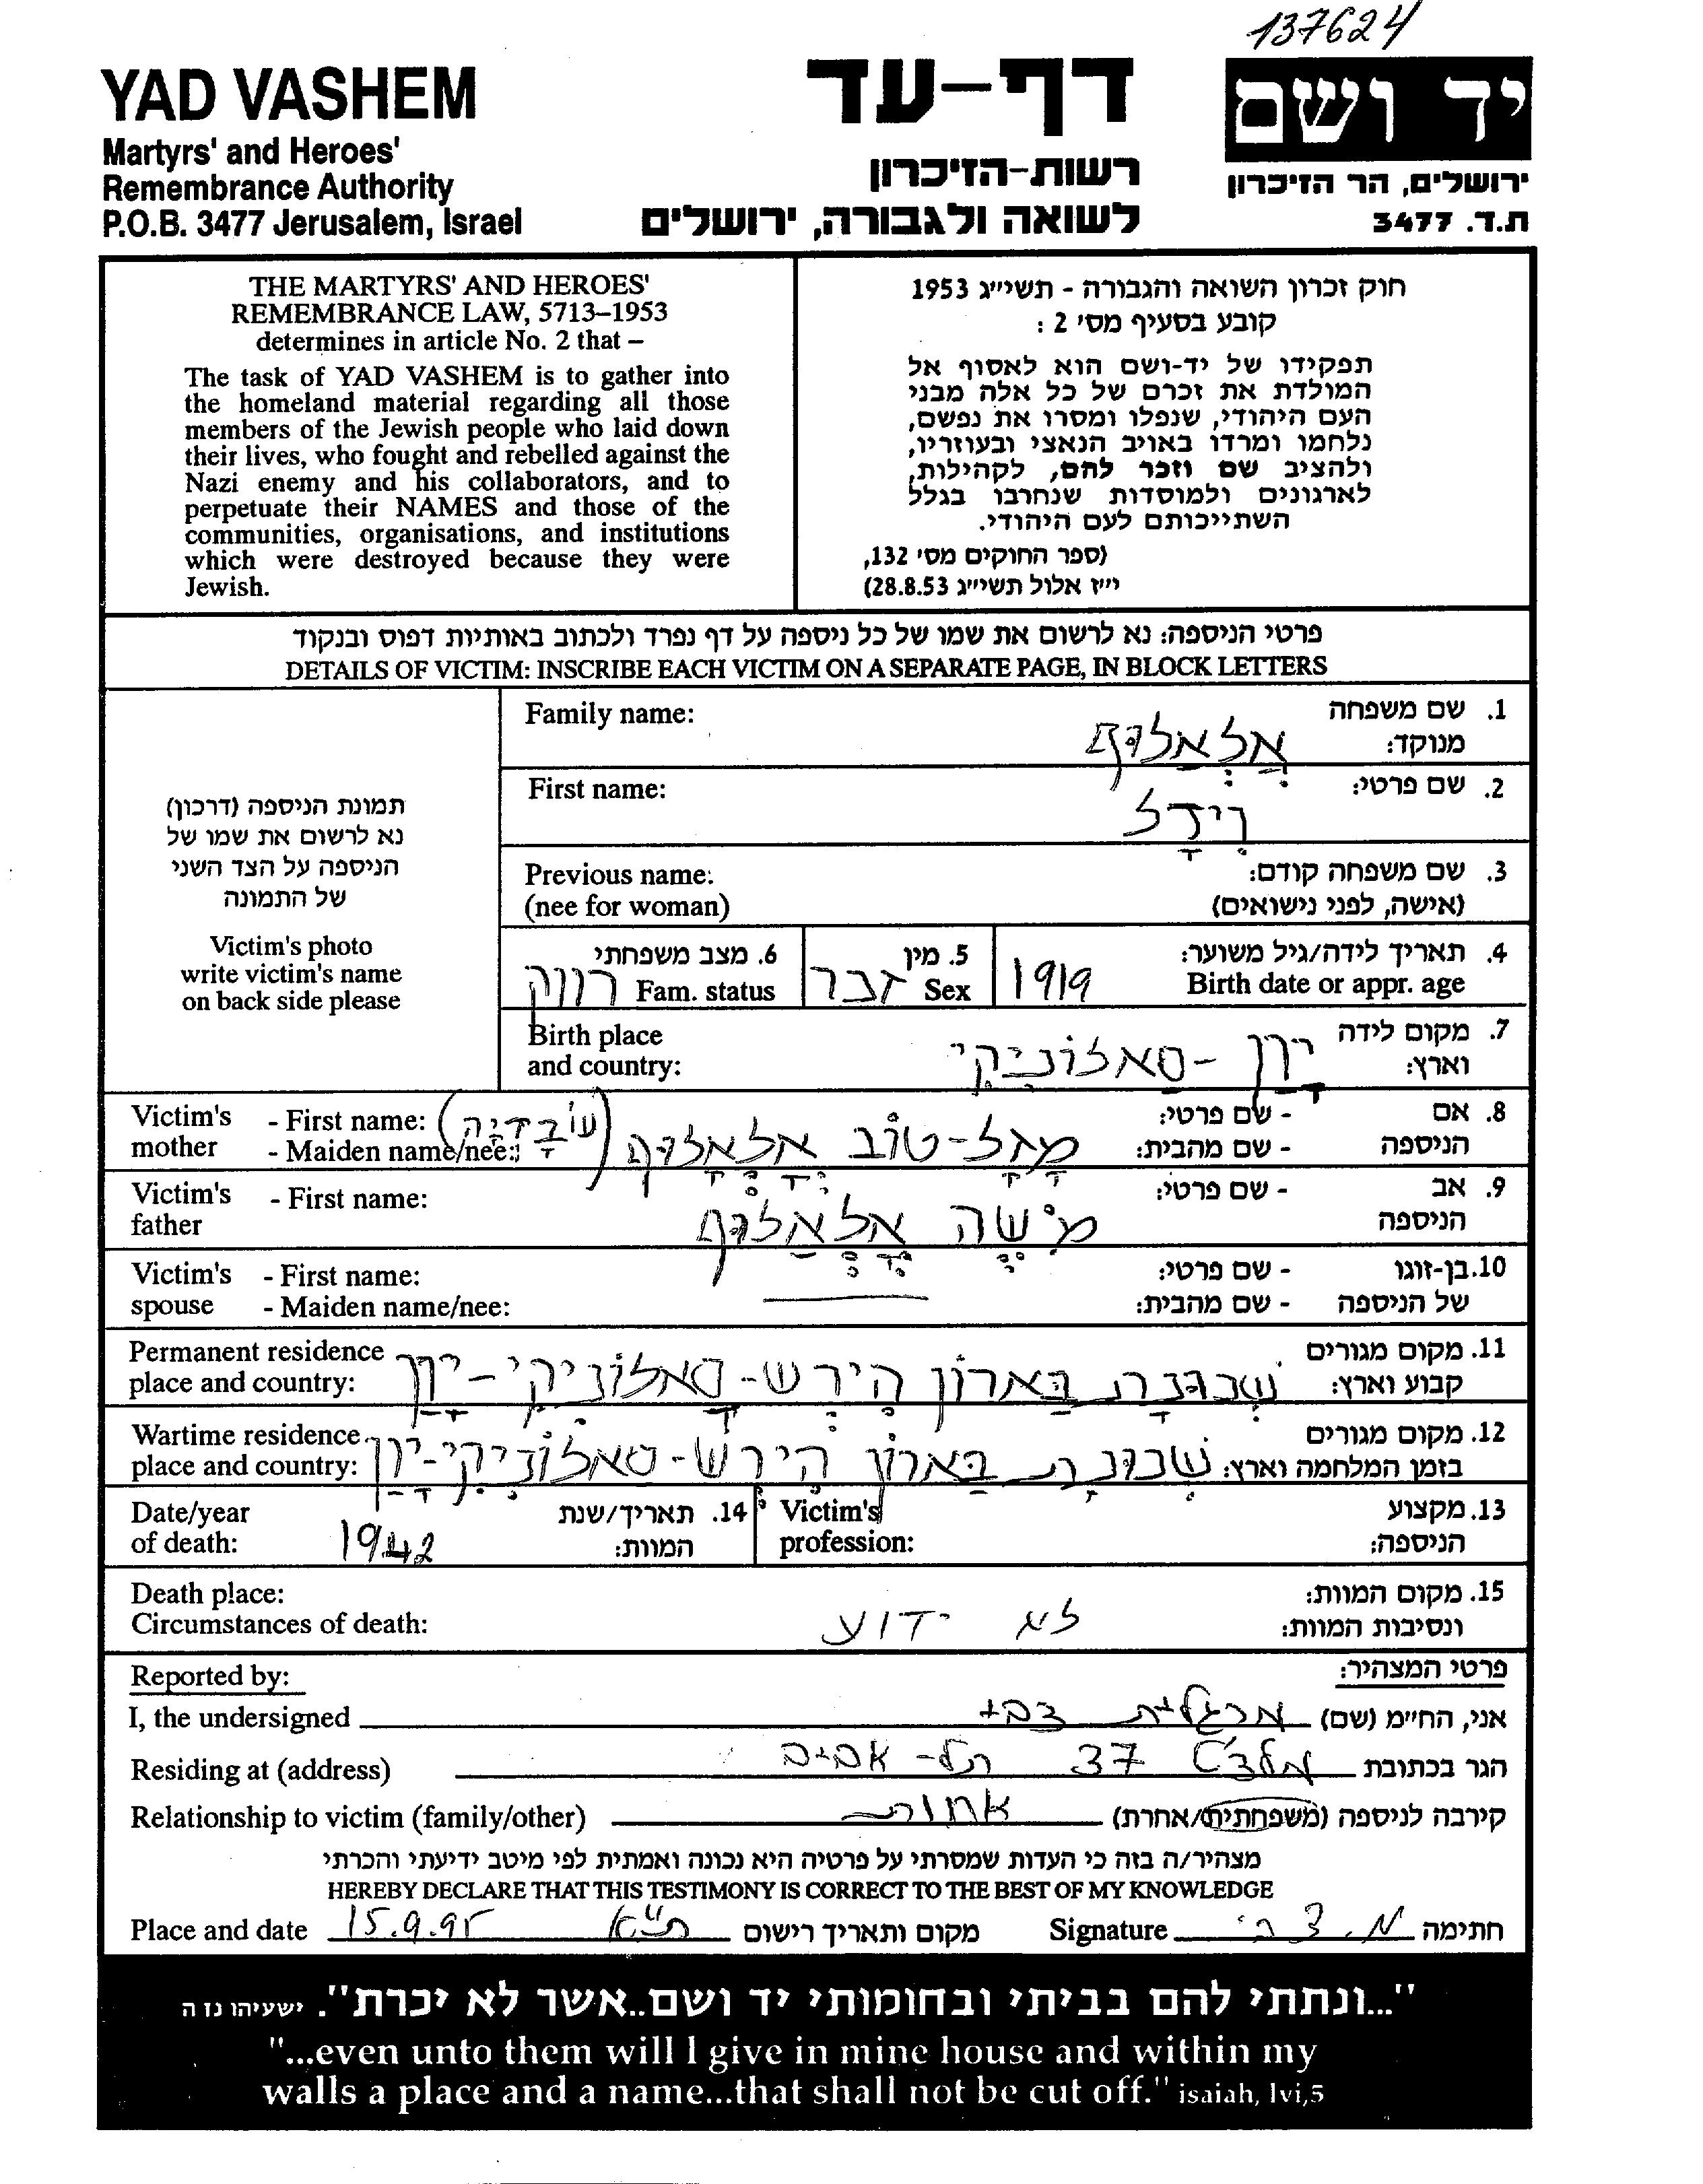 137624
YAD VASHEM
Martyrs' and Heroes'
Remembrance Authority
P.O.B. 3477 Jerusalem, Israel
דף-עד
רשות-הזיכרון
לשואה ולגבורה, ירושלים
יד ושם
ירושלים, הר הזיכרון
ת.ד. 3477
THE MARTYRS' AND HEROES'
REMEMBRANCE LAW, 5713–1953
determines in article No. 2 that –
The task of YAD VASHEM is to gather into
the homeland material regarding all those
members of the Jewish people who laid down
their lives, who fought and rebelled against the
Nazi enemy and his collaborators, and to
perpetuate their NAMES and those of the
communities, organisations, and institutions
which were destroyed because they were
Jewish.
חוק זכרון השואה והגבורה - תשי״ג 1953
קובע בסעיף מס׳ 2 :
תפקידו של יד-ושם הוא לאסוף אל
המולדת את זכרם של כל אלה מבני
העם היהודי, שנפלו ומסרו את נפשם,
נלחמו ומרדו באויב הנאצי ובעוזריו,
ולהציב שם וזכר להם, לקהילות,
לארגונים ולמוסדות שנחרבו בגלל
השתייכותם לעם היהודי.
(ספר החוקים מס׳ 132,
י״ז אלול תשי״ג 28.8.53)
פרטי הניספה: נא לרשום את שמו של כל ניספה על דף נפרד ולכתוב באותיות דפוס ובנקוד
DETAILS OF VICTIM: INSCRIBE EACH VICTIM ON A SEPARATE PAGE, IN BLOCK LETTERS
תמונת הניספה (דרכון)
נא לרשום את שמו של
הניספה על הצד השני
של התמונה
Victim's photo
write victim's name
on back side please
Family name:
1. שם משפחה
מנוקד:
First name:
2. שם פרטי:
וידל
Previous name:
(nee for woman)
3. שם משפחה קודם:
(אישה, לפני נישואים)
4. תאריך לידה/גיל משוער:
Birth date or appr. age
1919
5. מין
Sex
זכר
6. מצב משפחתי
Fam. status
רווק
Birth place
and country:
7. מקום לידה
וארץ:
יון - סאלוניקי
Victim's mother
- First name:
- Maiden name/nee:
8. אם הניספה
- שם פרטי:
- שם מהבית:
מזל-טוב (עובדיה)
Victim's father
- First name:
9. אב הניספה
- שם פרטי:
משה
Victim's spouse
- First name:
- Maiden name/nee:
10. בן-זוגו של הניספה
- שם פרטי:
- שם מהבית:
Permanent residence
place and country:
11. מקום מגורים
קבוע וארץ:
שכונת בארון הירש - סאלוניקי - יון
Wartime residence
place and country:
12. מקום מגורים
בזמן המלחמה וארץ:
שכונת בארון הירש - סאלוניקי - יון
Date/year
of death:
14. תאריך/שנת
המוות:
1942
Victim's
profession:
13. מקצוע
הניספה:
Death place:
Circumstances of death:
15. מקום המוות:
ונסיבות המוות:
לא ידוע
Reported by:
פרטי המצהיר:
I, the undersigned
אני, החי״מ (שם) מרגלית צבי
Residing at (address)
הגר בכתובת 37 תל-אביב
Relationship to victim (family/other)
קירבה לניספה (משפחתית/אחרת) אחות
מצהיר/ה בזה כי העדות שמסרתי על פרטיה היא נכונה ואמתית לפי מיטב ידיעתי והכרתי
HEREBY DECLARE THAT THIS TESTIMONY IS CORRECT TO THE BEST OF MY KNOWLEDGE
Place and date 15.9.95 ת״א מקום ותאריך רישום
Signature מ. צבי חתימה
"...ונתתי להם בביתי ובחומותי יד ושם..אשר לא יכרת". ישעיהו נז ה
"...even unto them will I give in mine house and within my
walls a place and a name...that shall not be cut off." isaiah, lvi,5